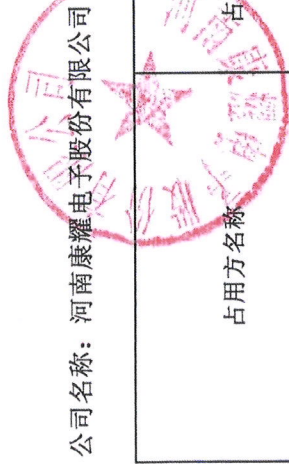 公司名称：河南康耀电子股份有限公司
占用方名称
占